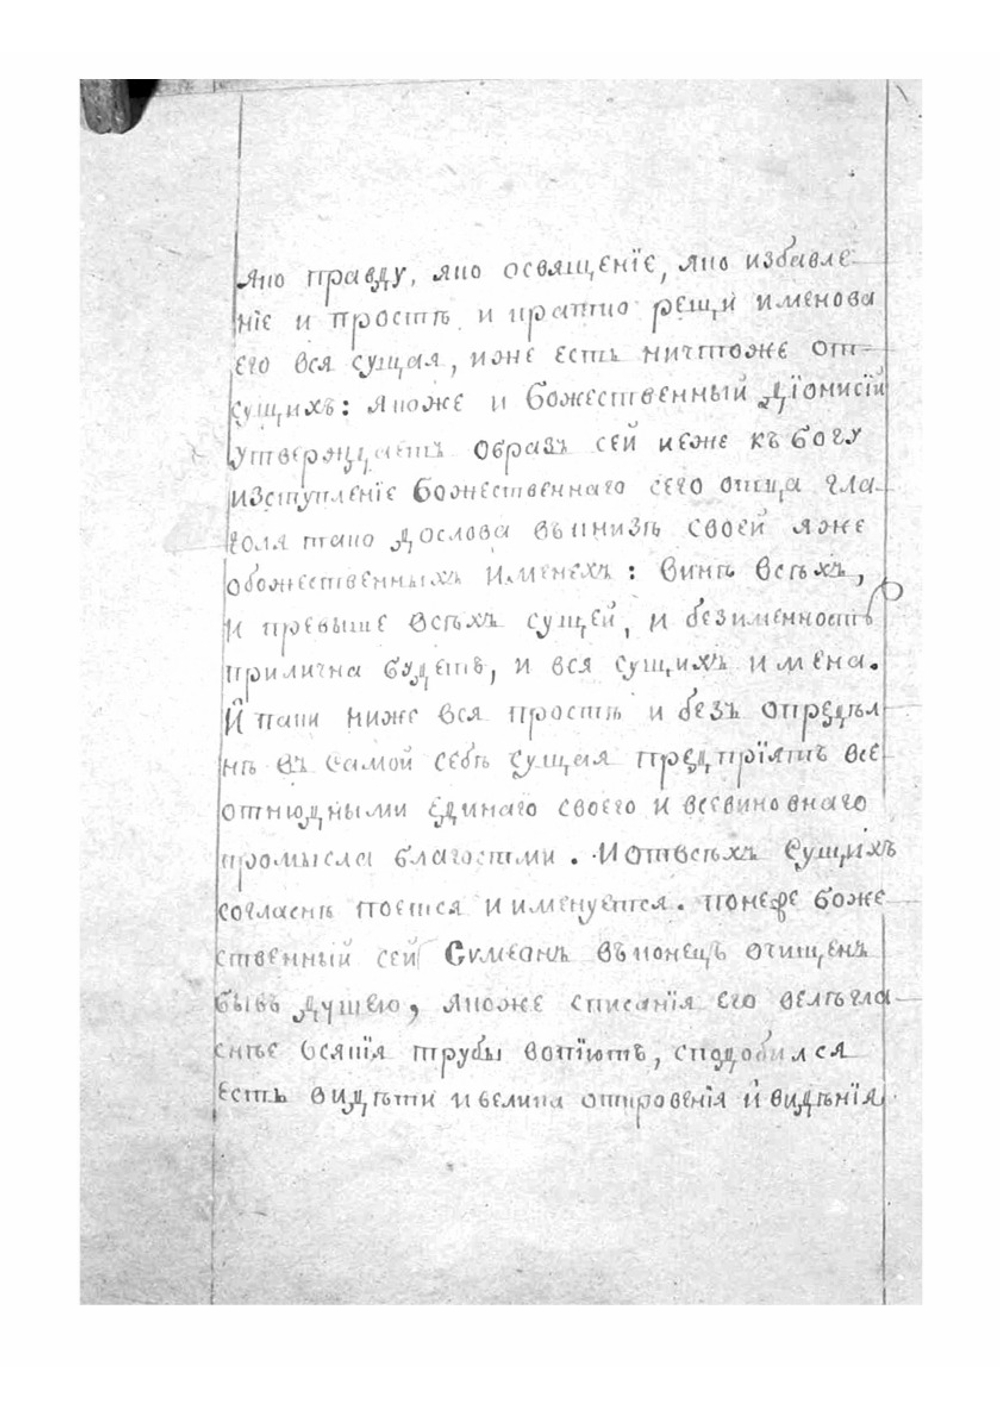 яко правду, яко освященїе, яко избавле
нїе и простѣ и кратко рещи именова
его вся сущая, иже есть ничтоже от
сущихъ: якоже и божественный Дїонисїй
утверждаетъ образъ сей иеже къ богу
изступленїе божественнаго сего отца гла
голя тако дослова въ книзѣ своей яже
обожественныхъ именехъ: винѣ всѣхъ,
и превыше всѣхъ сущей, и безименность
прилична будетъ, и вся сущихъ имена.
И паки ниже вся простѣ и безъ опредѣл
нѣ въ самой себѣ сущая предпрїятъ все
отнюдными единаго своего и всевиновнаго
промысла благостми. И отвсѣхъ сущихъ
согласнѣ поется и именуется. понеже боже
ственный сей Сѵмеонъ въ конецъ очищенъ
бывъ душею, якоже списанїя его велѣгла
снѣе всякїя трубы вопїютъ, сподобился
есть видѣти и велика откровенїя и видѣнїя